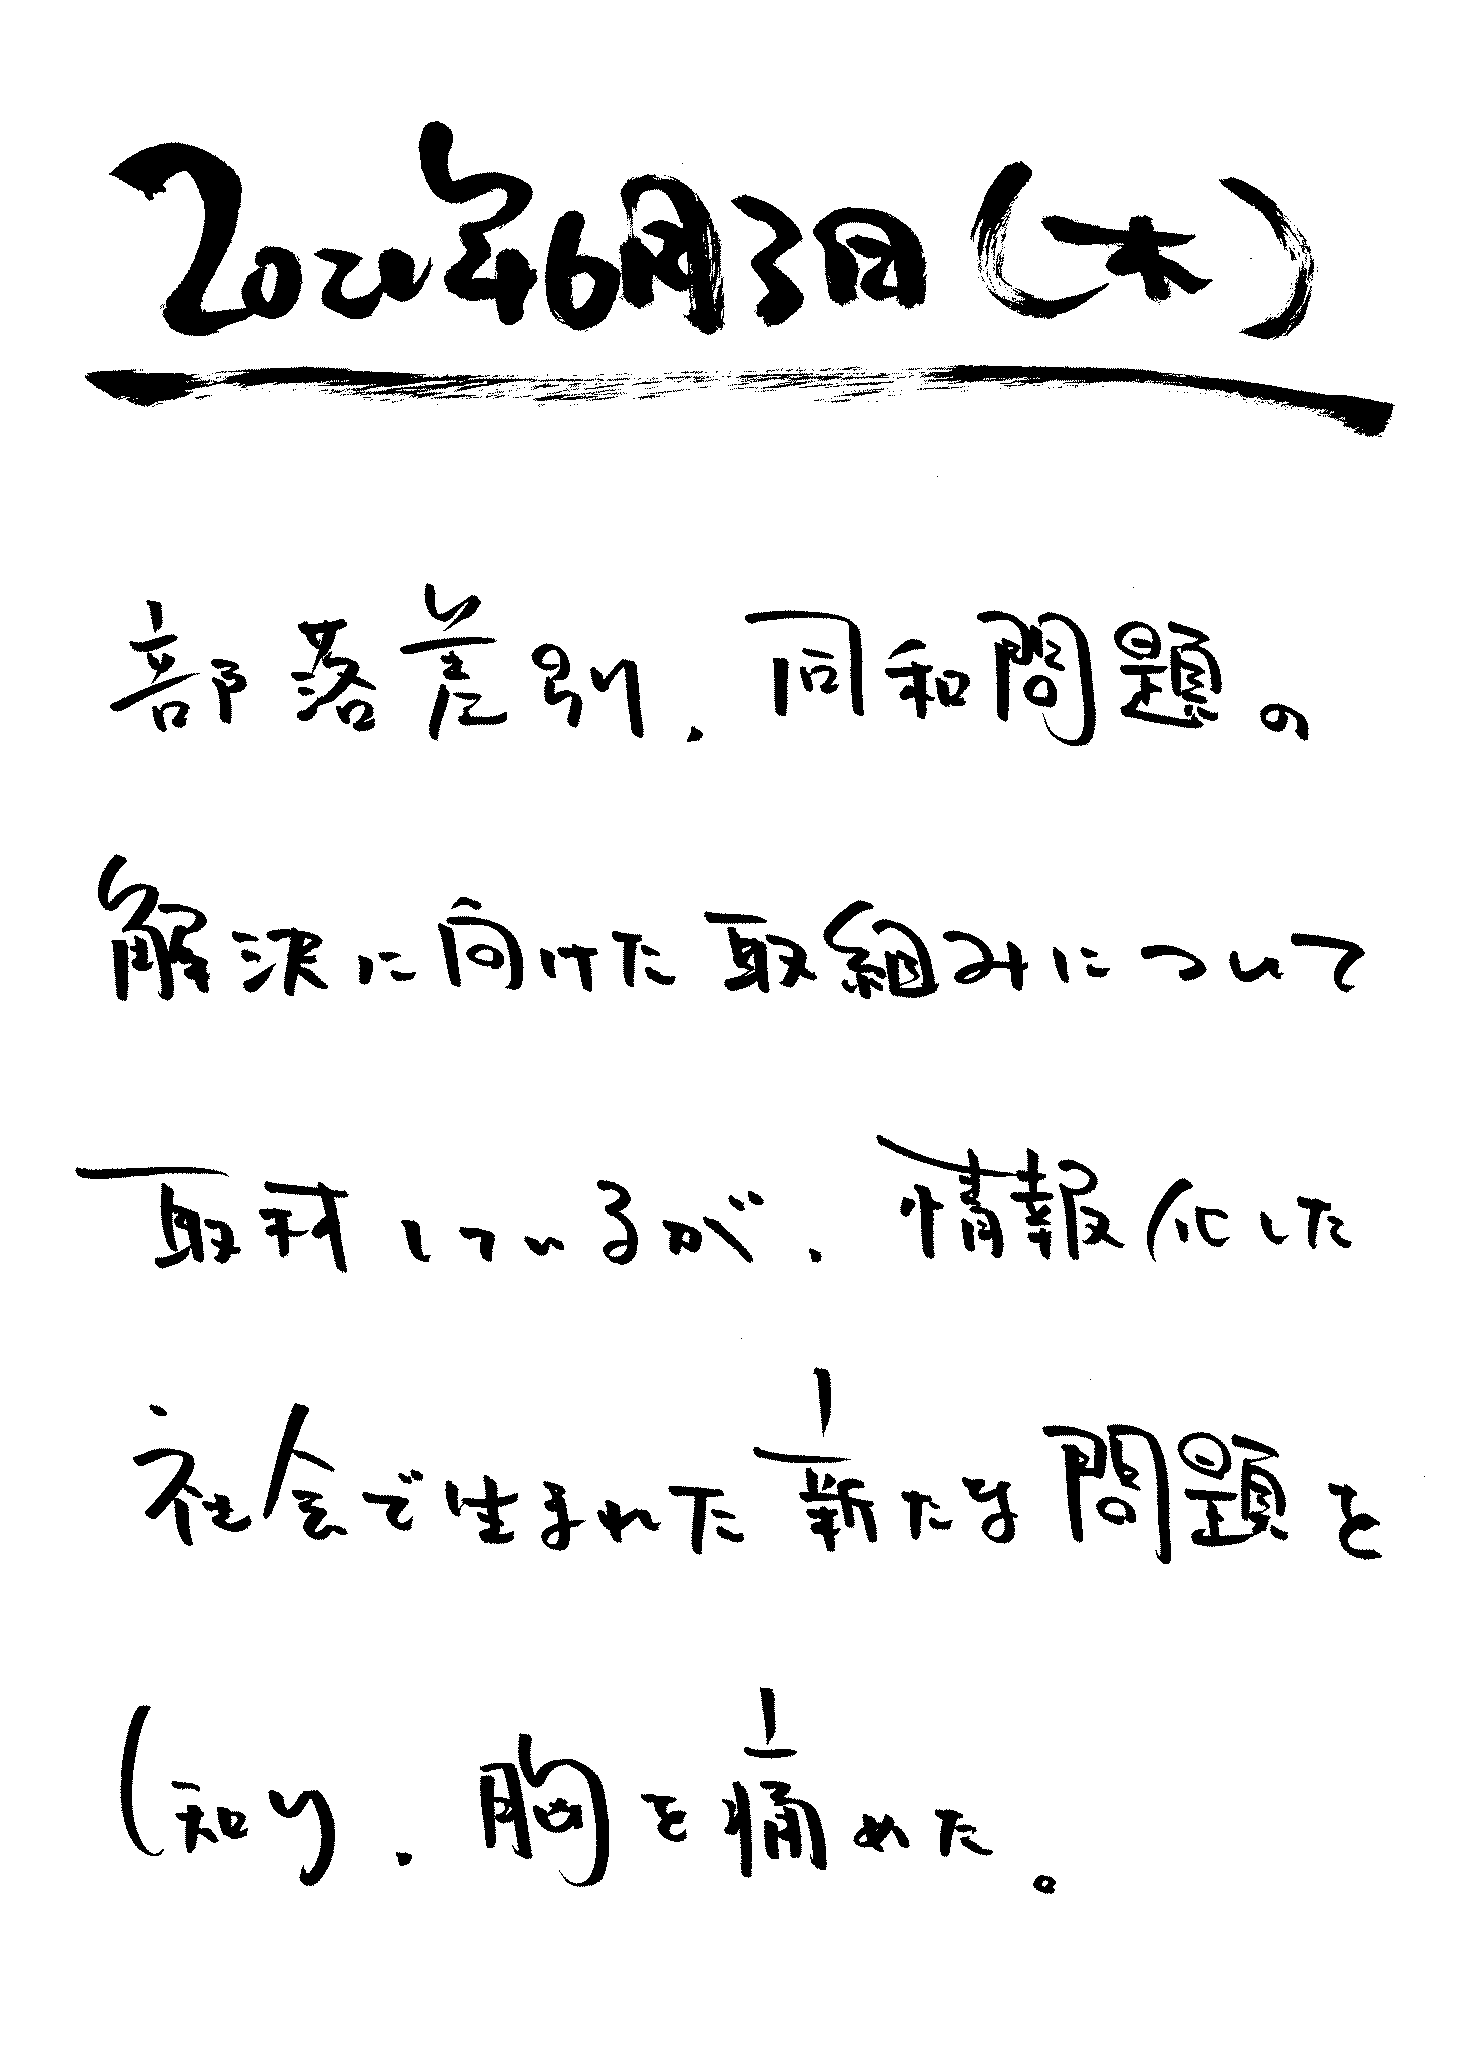 2021年6月3日(木)
部落差別、同和問題の
解決に向けた取組みについて
取材しているが、情報化した
社会で生まれた新たな問題を
知り、胸を痛めた。